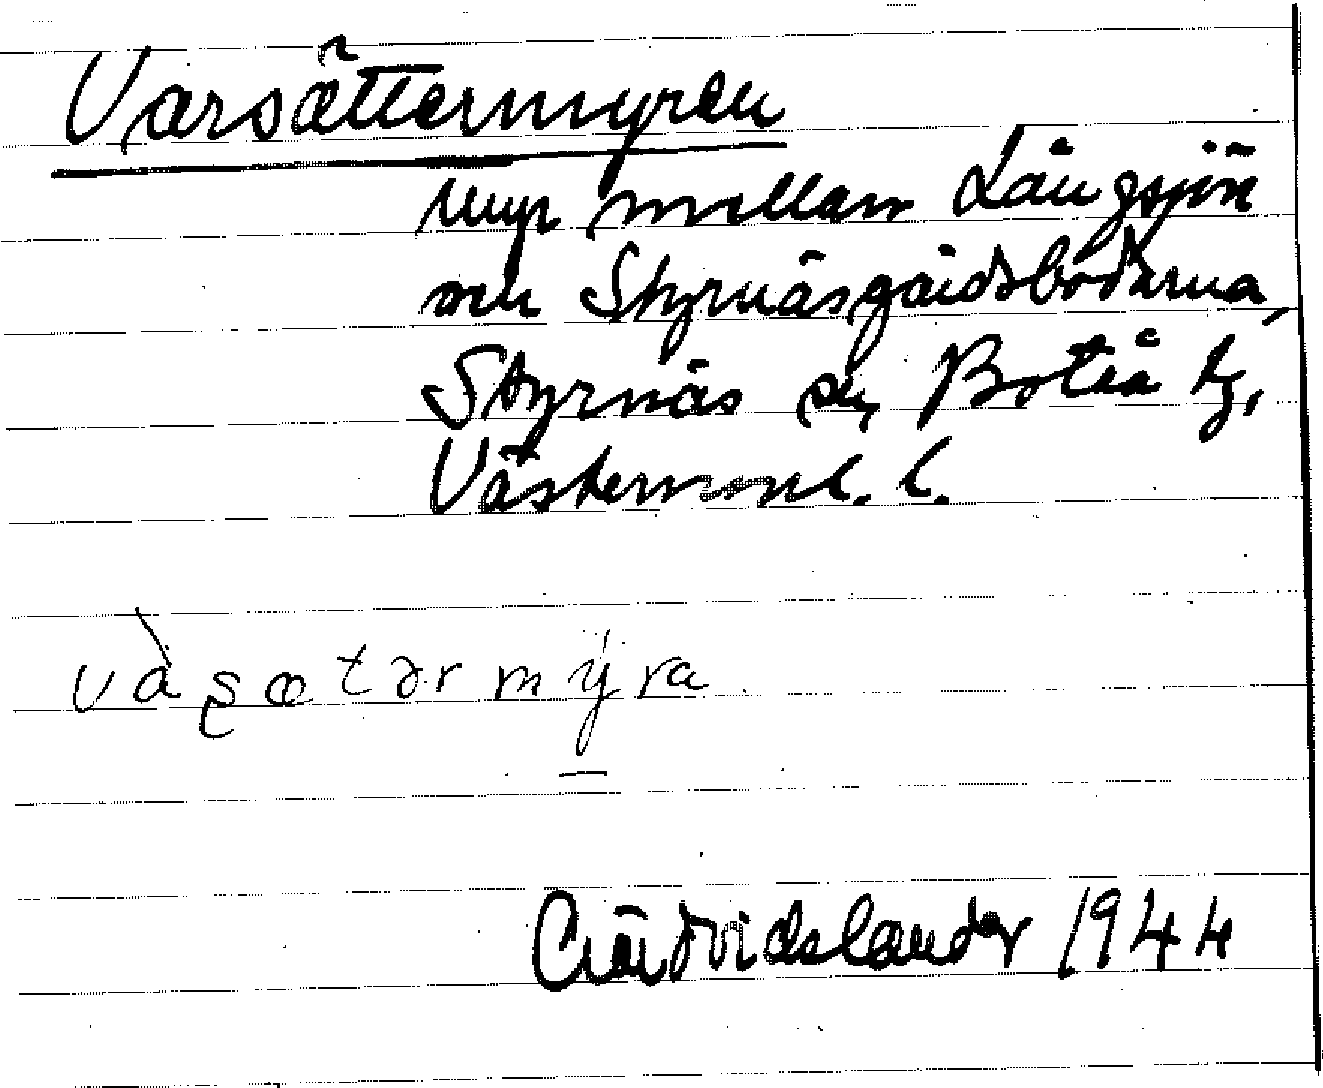 Varsättermyren
myr mellan Långsjön
och Styrnäsgårdsbodarna,
Styrnäs sn, Boteå tg,
Västernorrl. l.
và̀ʂætər mýra
1944